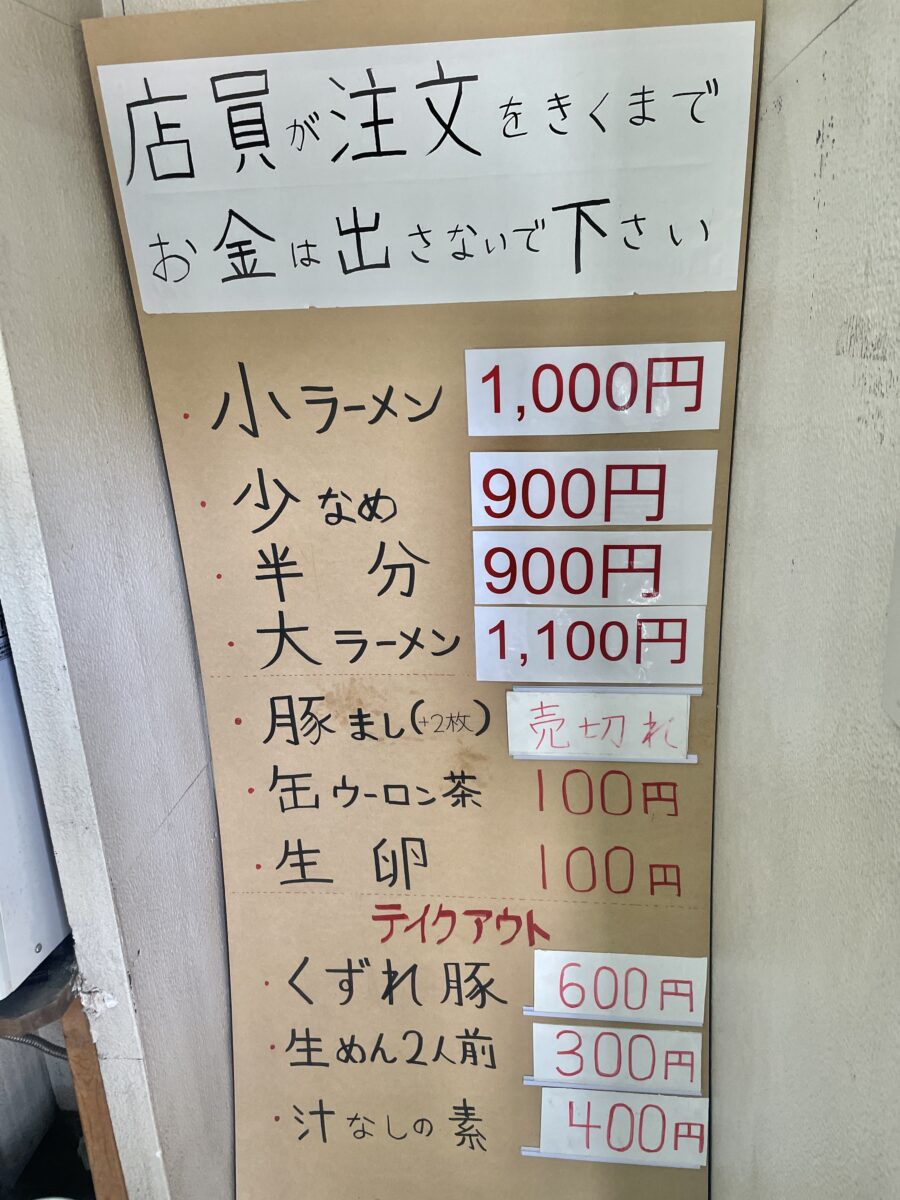 店員が注文をきくまで
お金は出さないで下さい
・小ラーメン 1,000円
・少なめ 900円
・半分 900円
・大ラーメン 1,100円
・豚まし(+2枚) 売切れ
・缶ウーロン茶 100円
・生卵 100円
テイクアウト
・くずれ豚 600円
・生めん2人前 300円
・汁なしの素 400円